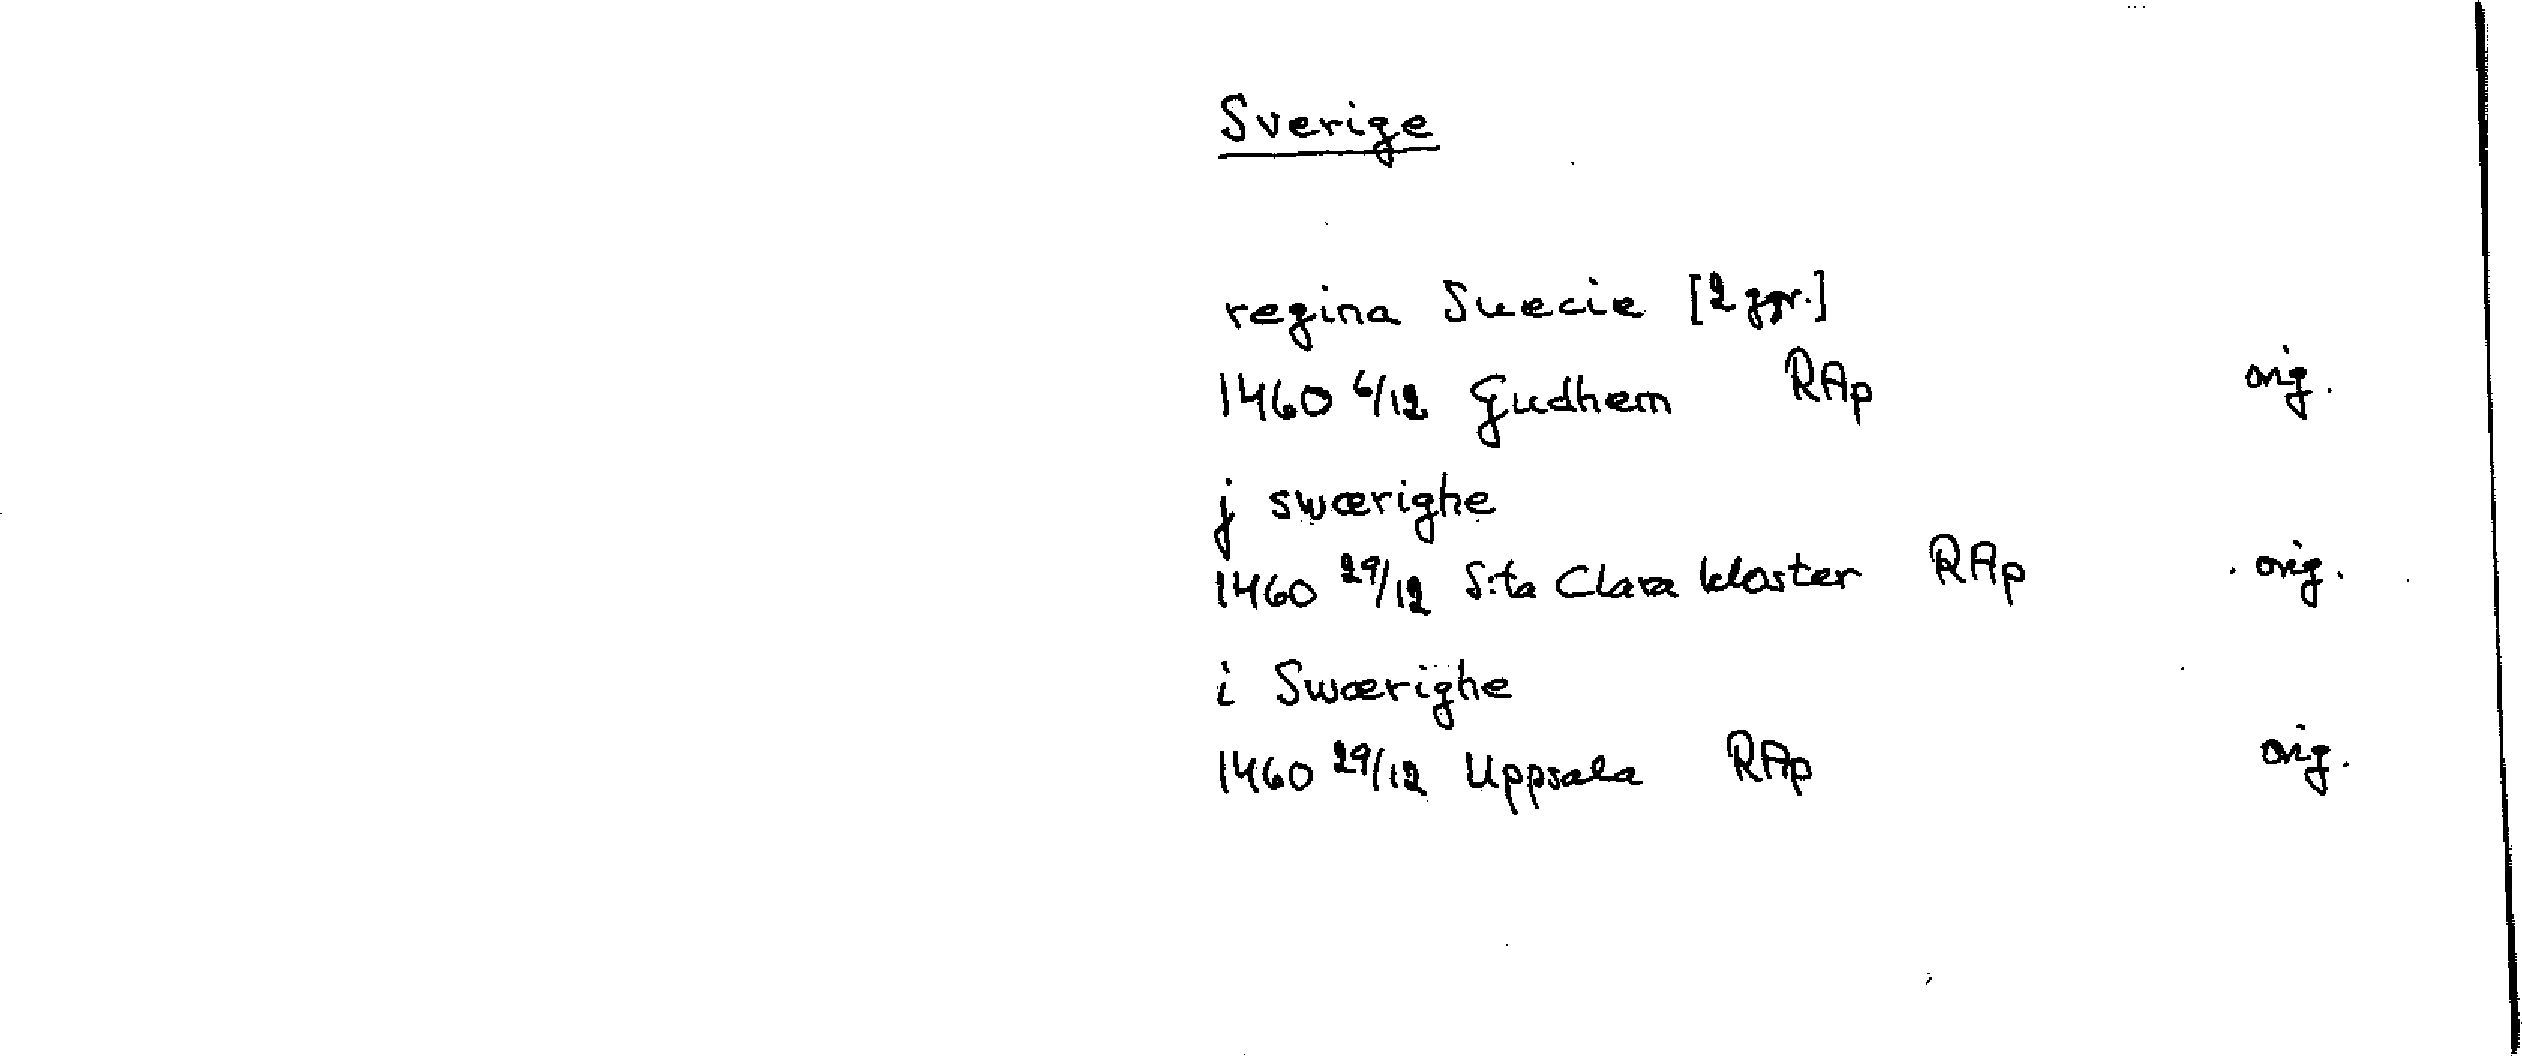 Sverige
regina Suecie [2 ggr.]
1460 6/12 Gudhem RAp orig.
j swærighe
1460 29/12 S:ta Clara kloster RAp orig.
i Swærighe
1460 29/12 Uppsala RAp orig.